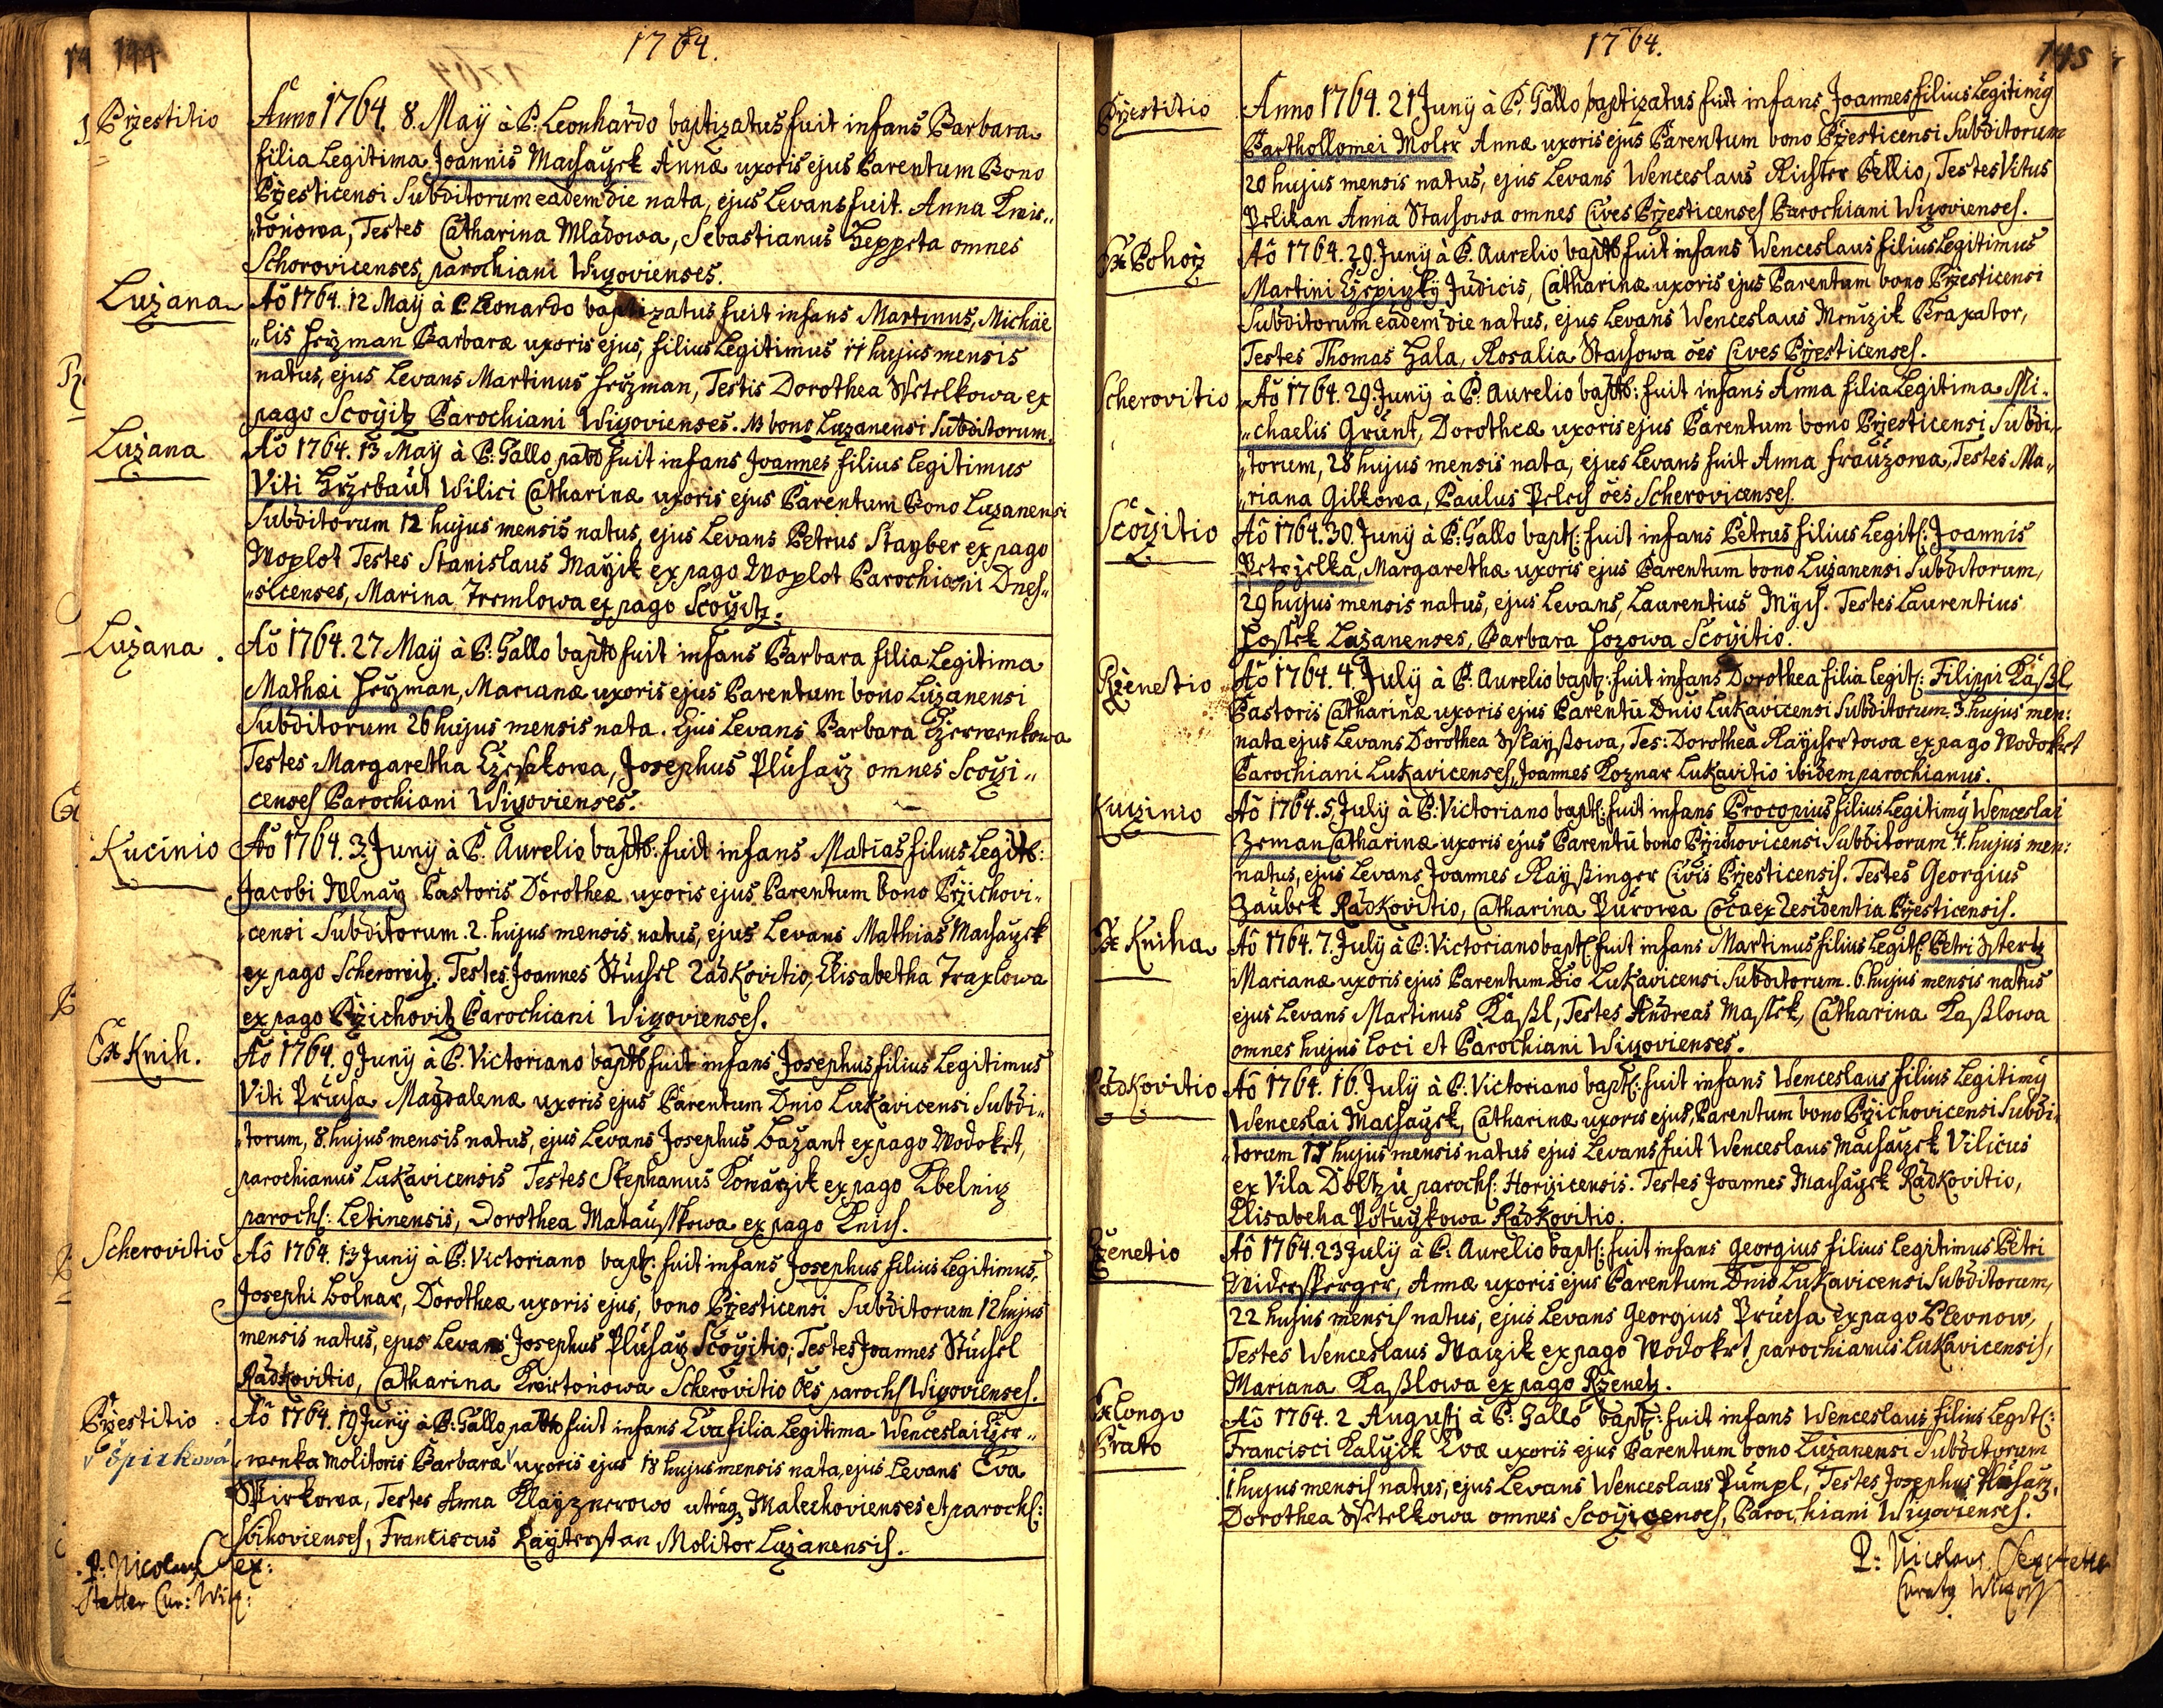 144
1764.
Przestitio
Anno 1764. 8. Maÿ à P: Leonhardo baptizatus fuit infans Barbara
filia Legitima Joannis Machaczek Annæ uxoris ejus Parentum Bono
Przesticensi Subditorum eadem die nata, ejus Levans fuit. Anna Kwis„
„toňowa, Testes Catharina Mladowa, Sebastianus Heppeta omnes
Schorovicenses, parochiani Wiczovienses.
Luzana
Aõ 1764. 12 Maÿ à P. Leonardo baptizatus fuit infans Martinus, Michäe
„lis Herzman Barbaræ uxoris ejus, filius Legitimus 11 hujus mensis
natus, ejus Levans Martinus Herzman, Testis Dorothea Wetelkowa ex
pago Scoczitz Parochiani Wiczovienses. NB bono Luzanensi Subditorum.
Luzana
Aõ 1764. 13 Maÿ à P: Gallo patô fuit infans Joannes filius legitimus
Viti Wilici Catharinæ uxoris ejus Parentum Bono Luzanensi
Subditorum 12 hujus mensis natus, ejus Levans Petrus Stayber ex pago
Woplot Testes Stanislaus Mayik ex pago Woplot Parochiani Dnes„
„sicenses, Marina Tremlowa ex pago Scoczitz.
Luzana.
Aõ 1764. 27 Maÿ à P: Gallo baptô fuit infans Barbara filia Legitima
Mathæi Herzman, Marianæ uxoris ejus Parentum bono Luzanensi
Subditorum 26 hujus mensis nata. Ejus Levans Barbara Czerwenkowa
Testes Margaretha Czeskowa, Josephus Pluharz omnes Scoczi„
censes Parochiani Wiczovienses.
Kucinio
Aõ 1764. 3. Junÿ à P. Aurelio baptô: fuit infans Matias filius Legitô:
Jacobi Wlnarz Pastoris Dorotheæ uxoris ejus Parentum bono Przichovi„
„censi Subditorum. 2. hujus mensis natus, ejus Levans Mathias Machaczek
ex pago Scherowitz. Testes Joannes Stuchel Radkovitio, Elisabetha Traxlowa
ex pago Przichovitz Parochiani Wiczovienses.
Ex Knih.
Aõ 1764. 9 Junÿ à P. Victoriano baptô fuit infans Josephus filius Legitimus
Viti Prucha Magdalenæ uxoris ejus Parentum Dnio Lukavicensi Subdi„
„torum, 8. hujus mensis natus, ejus Levans Josephus Bazant ex pago Wodokrt,
parochianus Lukavicensis Testes Stephanus Kowarzik ex pago Kbelnicz
paroch: Letinensis, Dorothea Matauschkowa ex pago Knich.
Scherovitio
Aõ 1764. 13 Junÿ à P: Victoriano bapt: fuit infans Josephus filius Legitimus,
Josephi Bolnar, Dorotheæ uxoris ejus, bono Przesticensi Subditorum 12 hujus
mensis natus, ejus Levans Josephus Pluharz Scoczitio; Testes Joannes Stuchel
Radkovitio, Catharina Kwistoňowa Scherovitio ões paroch Wiczovienses.
Przestitio.
Aõ 1764. 19 Junÿ à P: Gallo patô fuit infans Eva filia Legitima Wenceslai Czer„
√ Špirková
„wenka Molitoris Barbaræ √ uxoris ejus 18 hujus mensis nata, ejus Levans Eva
Spirkowa, Testes Anna Klayznerowo utraq Malechovienses et paroch:
Swihovienses, Franciscus Kayterstan Molitor Luzanensis.
P: Nicolaus Sex:
Stetter Cur: Wicz:
1764.
145
Przestitio
Anno 1764. 21 Junÿ à P. Gallo baptizatus fuit infans Joannes filius Legitimÿ
Barthollomei Moler Annæ uxoris ejus Parentum bono Przesticensi Subditorum
20 hujus mensis natus, ejus Levans Wenceslaus Richter Pellio, Testes Vitus
Pelikan Anna Stachowa omnes Cives Przesticenses Parochiani Wiczovienses.
Ex Pohorz
Aõ 1764. 29. Junÿ à P. Aurelio baptô fuit infans Wenceslaus filius Legitimus
Martini Czepiczkÿ Judicis, Catharinæ uxoris ejus Parentum bono Przesticensi
Subditorum eadem die natus, ejus Levans Wenceslaus Menczik Braxator,
Testes Thomas Hala, Rosalia Stachowa ões Cives Przesticenses.
Scherovitio
Aõ 1764. 29. Junÿ à P. Aurelio baptô: fuit infans Anna filia Legitima Mi„
„chaelis Grunt, Dorotheæ uxoris ejus Parentum bono Przesticensi Subdi„
„torum, 28 hujus mensis nata, ejus Levans fuit Anna Frauzowa, Testes Ma„
„riana Gilkowa, Paulus Pelech ões Scherovicenses.
Scoczitio
Aõ 1764. 30. Junÿ à P: Gallo bapt: fuit infans Petrus filius Legit: Joannis
Petrzelka, Margarethæ uxoris ejus Parentum bono Luzanensi Subditorum,
29 hujus mensis natus, ejus Levans, Laurentius Mych. Testes Laurentius
Hossek Luzanenses, Barbara Hozowa Scoczitio.
Rzenetio
Aõ 1764. 4. Julÿ à P: Aurelio bapt: fuit infans Dorothea filia legit: Filippi Kaßl
Pastoris Catharinæ uxoris ejus Parentũ Dnio Lukavicensi Subditorum 3. hujus men:
nata ejus Levans Dorothea Wlayßowa, Tes: Dorothea Raychertowa ex pago Wodokrt
Parochiani Lukavicenses, Joannes Koznar Lukavitio ibidem parochianus.
Kuczinio
Aõ 1764. 5, Julÿ à P: Victoriano bapt: fuit infans Procopius filius Legitimÿ Wenceslai
Zeman Catharinæ uxoris ejus Parentũ bono Przichovicensi Subditorum 4. hujus men:
natus, ejus Levans Joannes Rayßinger Civis Przesticensis. Testes Georgius
Zaubek Radkovitio, Catharina Purowa Coca ex Residentia Przesticensis.
Ex Kniha
Aõ 1764. 7. Julÿ à P: Victoriano bapt: fuit infans Martinus filius Legit: Petri Stertz
Marianæ uxoris ejus Parentum Dio Lukavicensi Subditorum. 6. hujus mensis natus
ejus Levans Martinus Kaßl, Testes Andreas Massek, Catharina Kaßlowa
omnes hujus loci et Parochiani Wiczovienses.
Radkovitio
Aõ 1764. 16. Julÿ à P: Victoriano bapt: fuit infans Wenceslaus filius Legitimÿ
Wenceslai Machaczek, Catharinæ uxoris ejus, Parentum bono Przichovicensi Subdi„
„torum 15 hujus mensis natus ejus Levans fuit Wenceslaus Machaczek Vilicus
ex Vila Doltzu paroch: Horzicensis. Testes Joannes Machaczek Radkovitio,
Elisabeha Potuczkowa Radkovitio.
Rzenetio
Aõ 1764. 23 Julÿ à P: Aurelio bapt: fuit infans Georgius filius Legitimus Petri
Niedersperger, Annæ uxoris ejus Parentum Dnio Lukavicensi Subditorum,
22 hujus mensis natus, ejus Levans Georgius Prucha ex pago Plevnow,
Testes Wenceslaus Waizik ex pago Wodokrt parochianus Lukavicensis,
Mariana Kaßlowa ex pago Rzenetz.
Ex Longo
Prato
Aõ 1764. 2 Augusti à P: Gallo bapt: fuit infans Wenceslaus filius Legit:
Francisci Kalyck Evæ uxoris ejus Parentum bono Luzanensi Subditorum
1 hujus mensis natus, ejus Levans Wenceslaus Pumpl, Testes Josephus Pluharz,
Dorothea Wetelkowa omnes Scoczicenses, Parochiani Wiczovienses.
P: Nicolaus Sexstetter
Curatq Wiczov